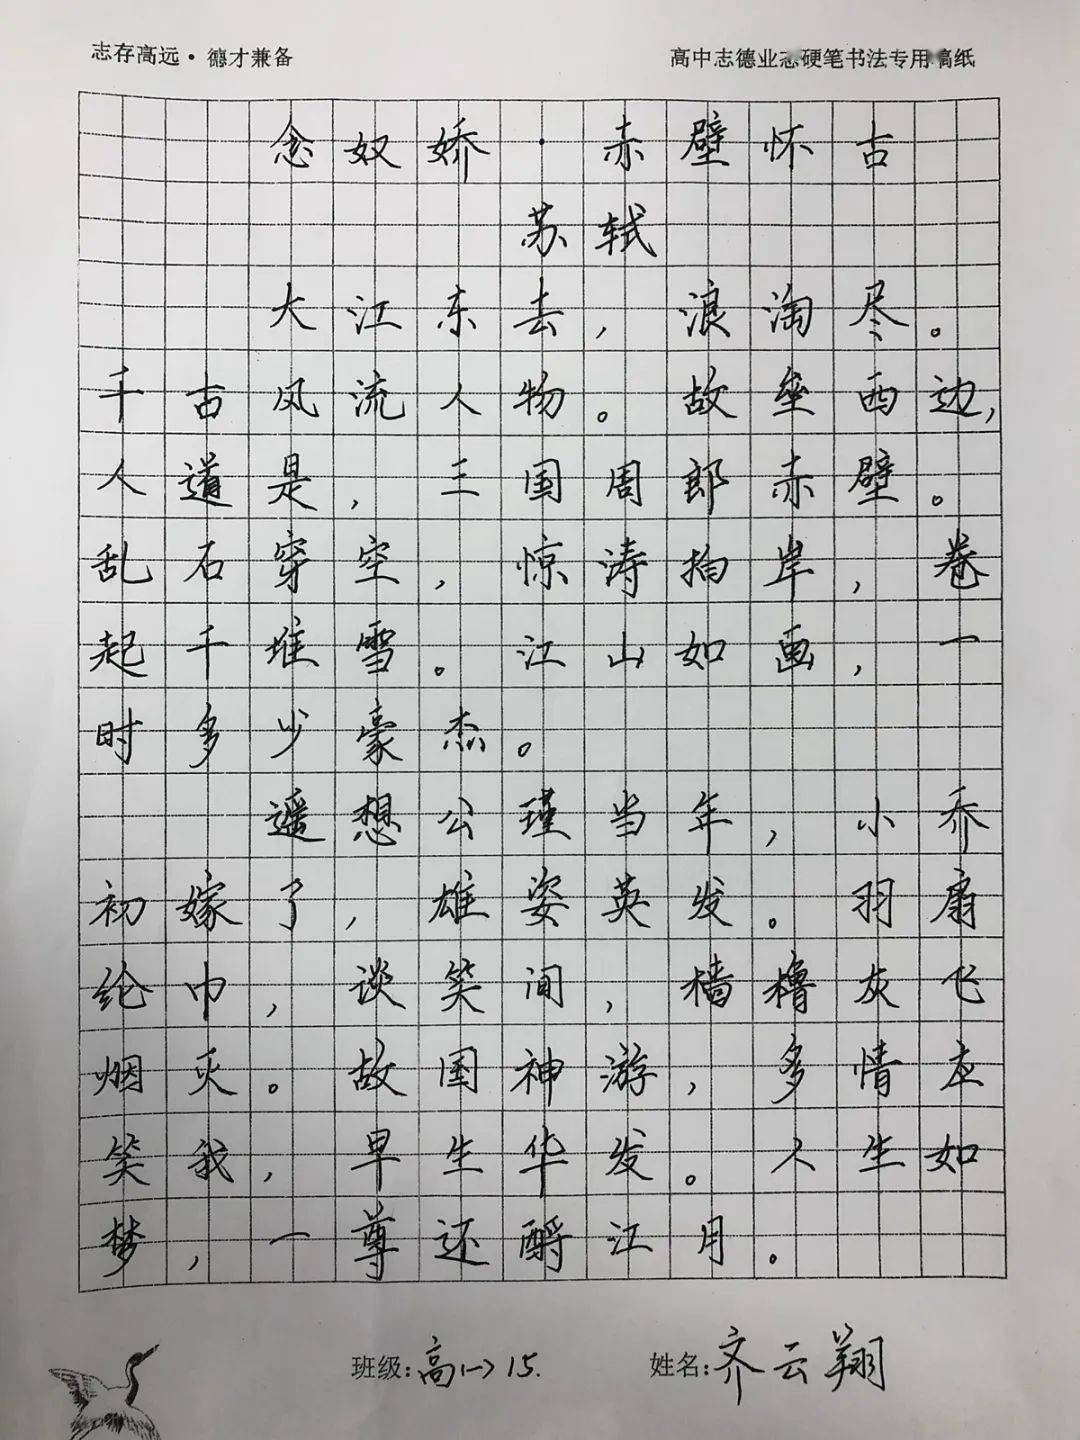 志存高远·德才兼备
高中志德业志硬笔书法专用稿纸
念奴娇·赤壁怀古
苏轼
大江东去，浪淘尽。
千古风流人物。故垒西边，
人道是，三国周郎赤壁。
乱石穿空，惊涛拍岸，卷
起千堆雪。江山如画，一
时多少豪杰。
遥想公瑾当年，小乔
初嫁了，雄姿英发。羽扇
纶巾，谈笑间，樯橹灰飞
烟灭。故国神游，多情应
笑我，早生华发。人生如
梦，一尊还酹江月。
班级:高(一)15. 姓名:齐云翔